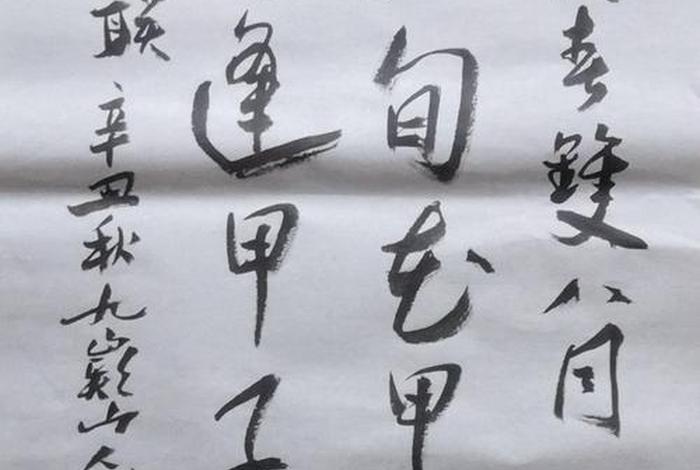 春雙八月
旬花甲
逢甲子
聯 辛丑秋九嶷山人